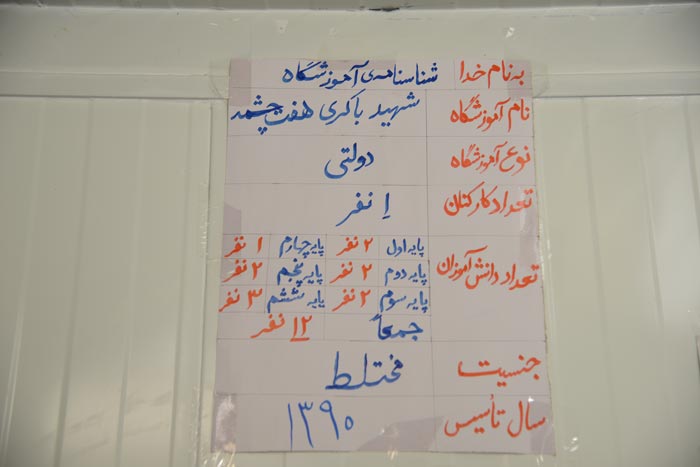 به نام خدا شناسنامه‌ی آموزشگاه
نام آموزشگاه شهید باکری هفت چشمه
نوع آموزشگاه دولتی
تعداد کارکنان ۱ نفر
تعداد دانش آموزان
پایه اول ۲ نفر پایه چهارم ۱ نفر
پایه دوم ۲ نفر پایه پنجم ۲ نفر
پایه سوم ۲ نفر پایه ششم ۳ نفر
جمعاً ۱۲ نفر
جنسیت مختلط
سال تأسیس ۱۳۹۰